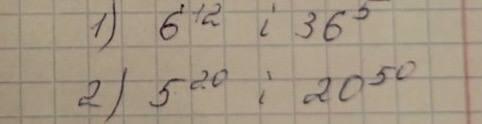 1) 6¹² і 36⁵
2) 5²⁰ і 20⁵⁰